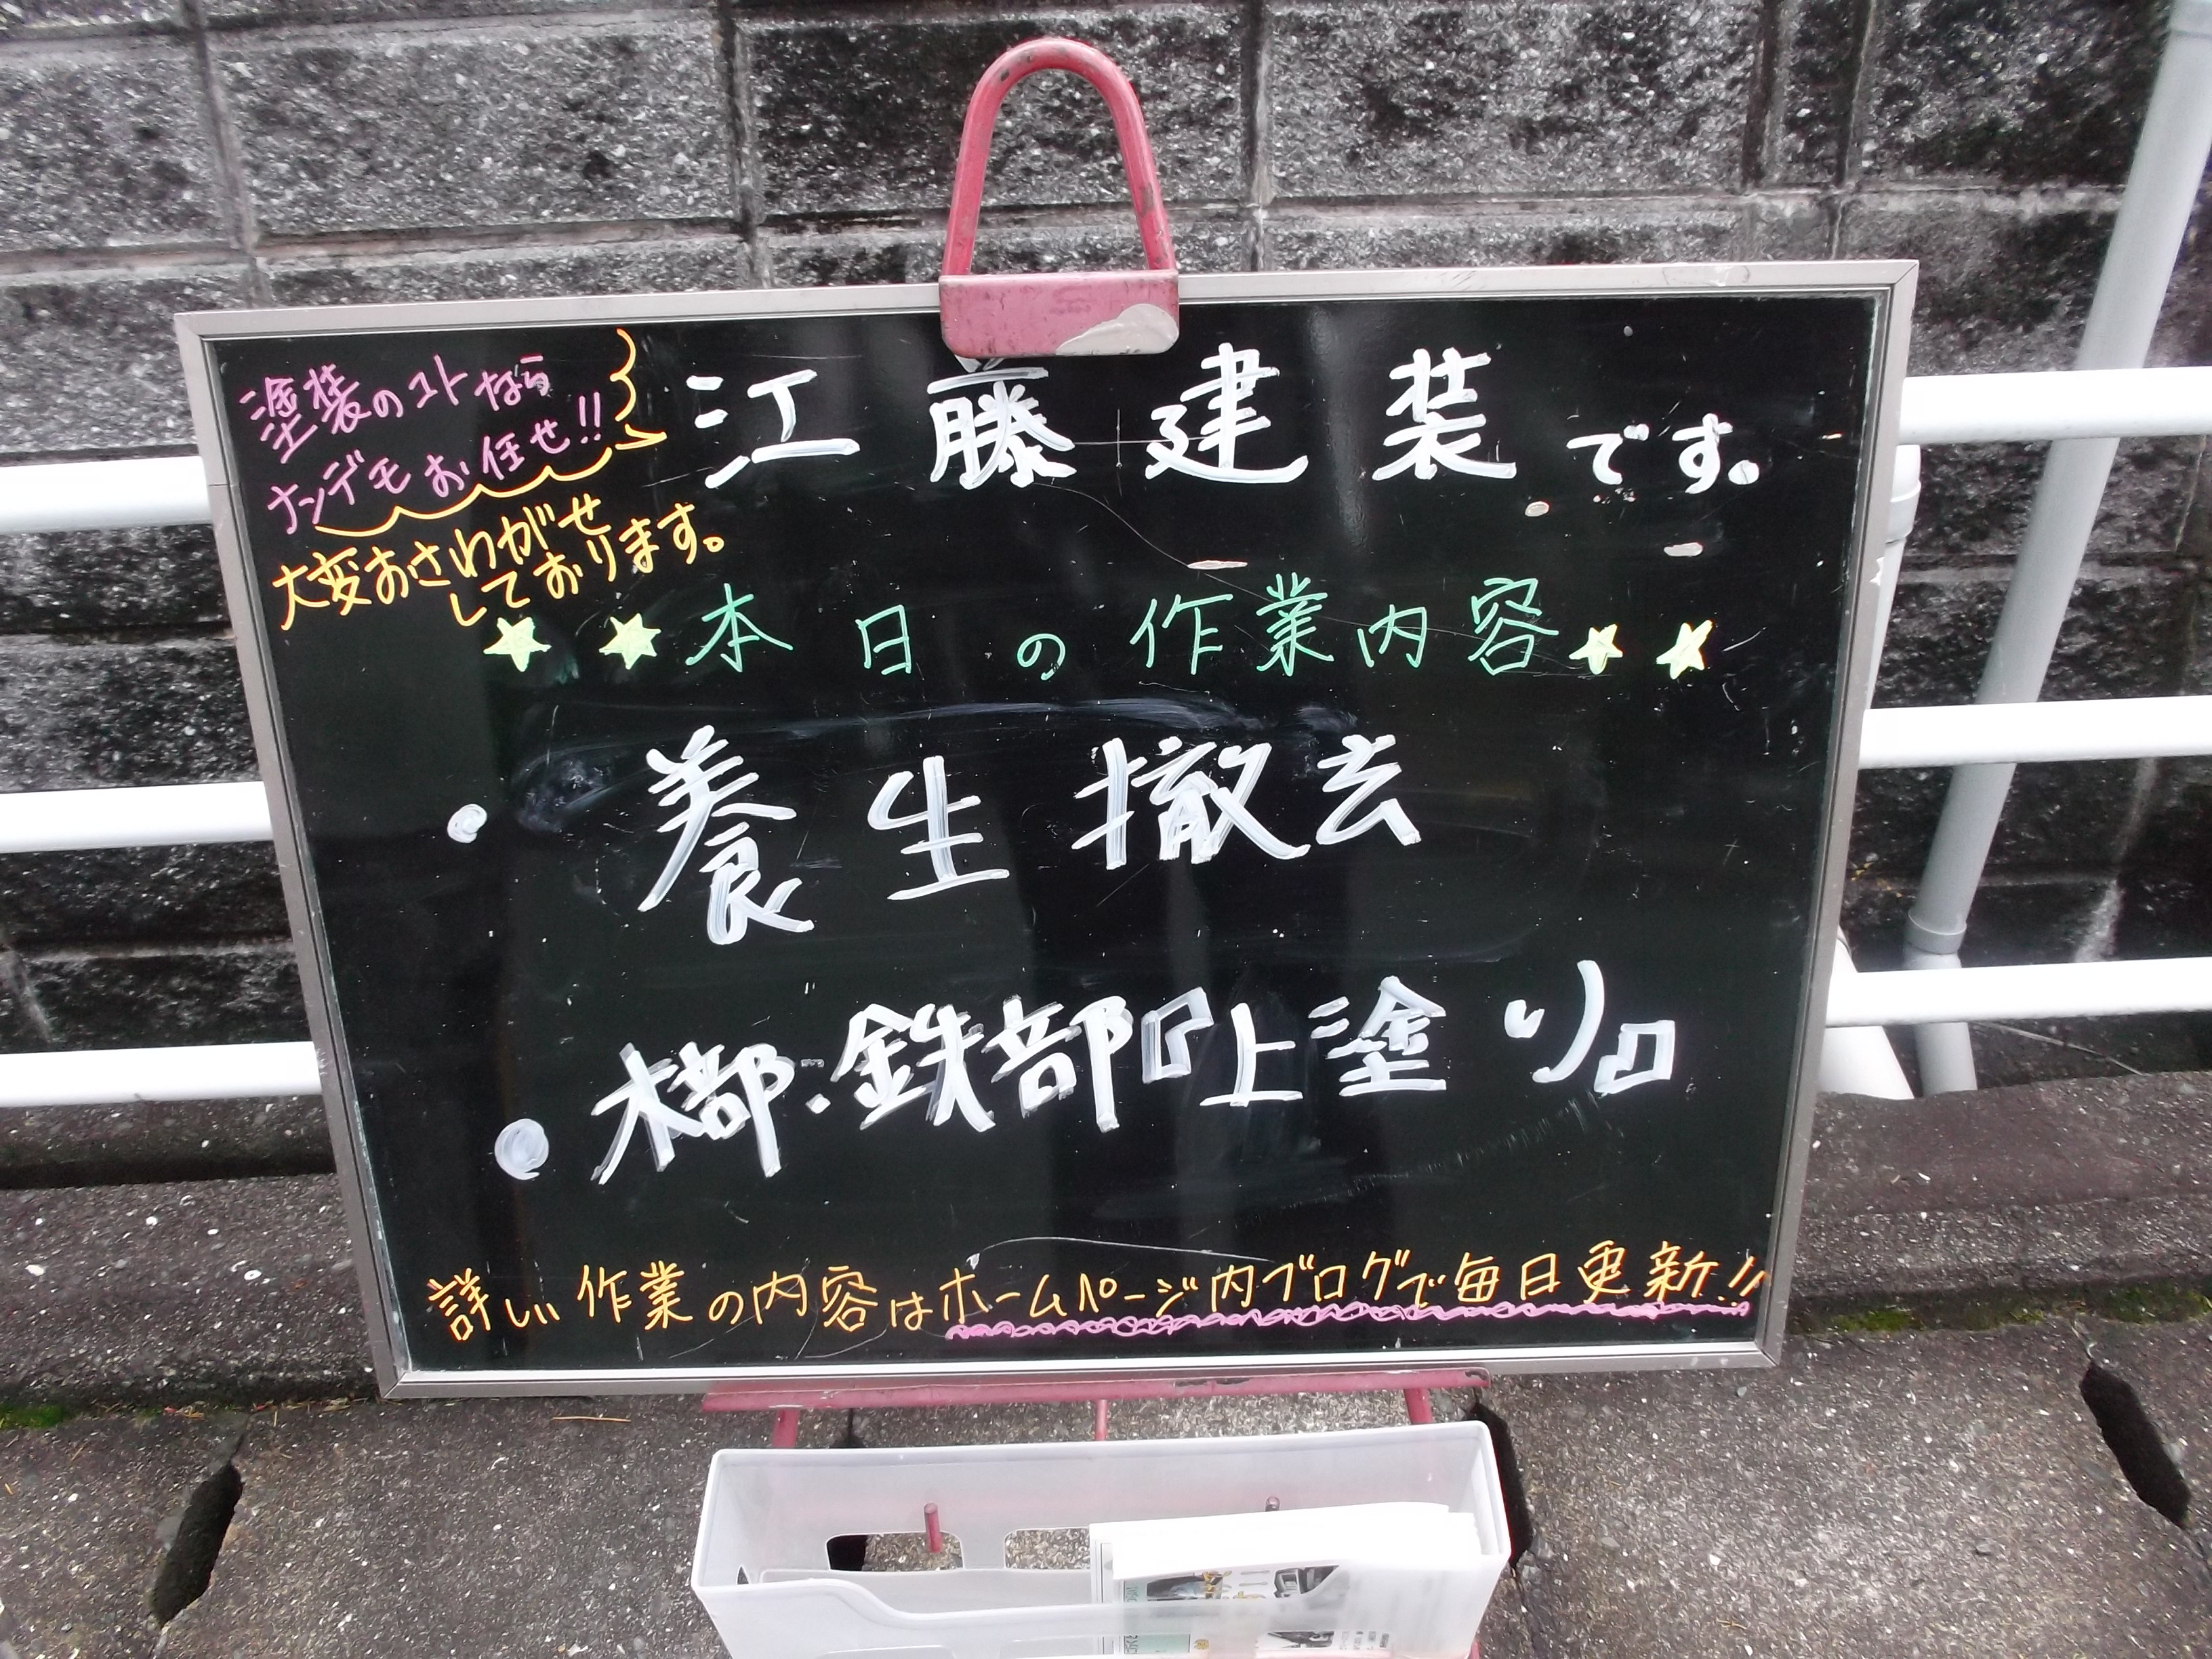 塗装のコトなら
ナンデモお任せ!!
江藤建装です。
大変おさわがせ
しております。
★★本日の作業内容★★
・養生撤去
・木部・鉄部『上塗り』
詳しい作業の内容はホームページ内ブログで毎日更新!!